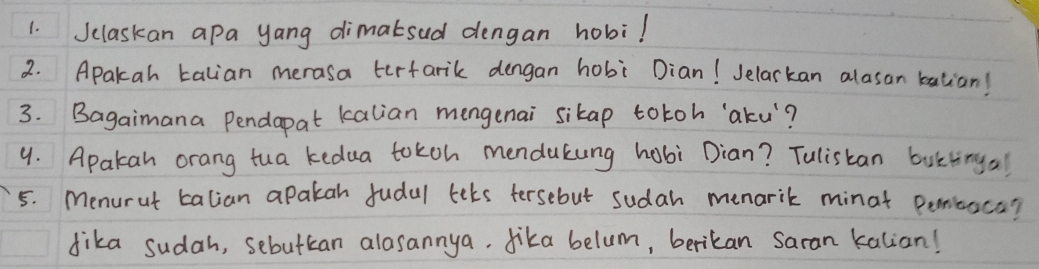 1. Jelaskan apa yang dimaksud dengan hobi!
2. Apakah kalian merasa tertarik dengan hobi Dian! Jelaskan alasan kalian!
3. Bagaimana Pendapat kalian mengenai sikap tokoh 'aku'?
4. Apakah orang tua kedua tokoh mendukung hobi Dian? Tuliskan buktinya!
5. Menurut kalian apakah judul teks tersebut sudah menarik minat pembaca?
jika sudah, sebutkan alasannya. jika belum, berikan saran kalian!